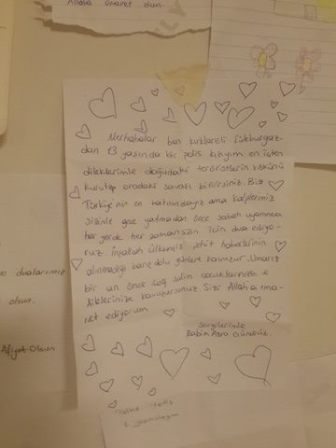 Allaha emanet olun.
Merhabalar ben Kırklareli Lüleburgaz
dan 13 yaşında bir polis kızıyım en içten
dileklerimle doğudaki teröristlerin kökünü
kurutup oradaki savaşı bitirirsiniz. Biz
Türkiye'nin en batısındayız ama kalplerimiz
sizinle gece yatmadan önce sabah uyanınca
her yerde her zaman sizin için dua ediyo-
ruz. İnşallah ülkemiz şehit haberlerinin
alınmadığı günlere kavuşur. Umarız
bir an önce sağ salim çocuklarınıza
ailelerinize kavuşursunuz. Sizi Allah'a ema-
net ediyorum
Sevgilerimle
dualarımız
olsun.
Afiyet Olsun